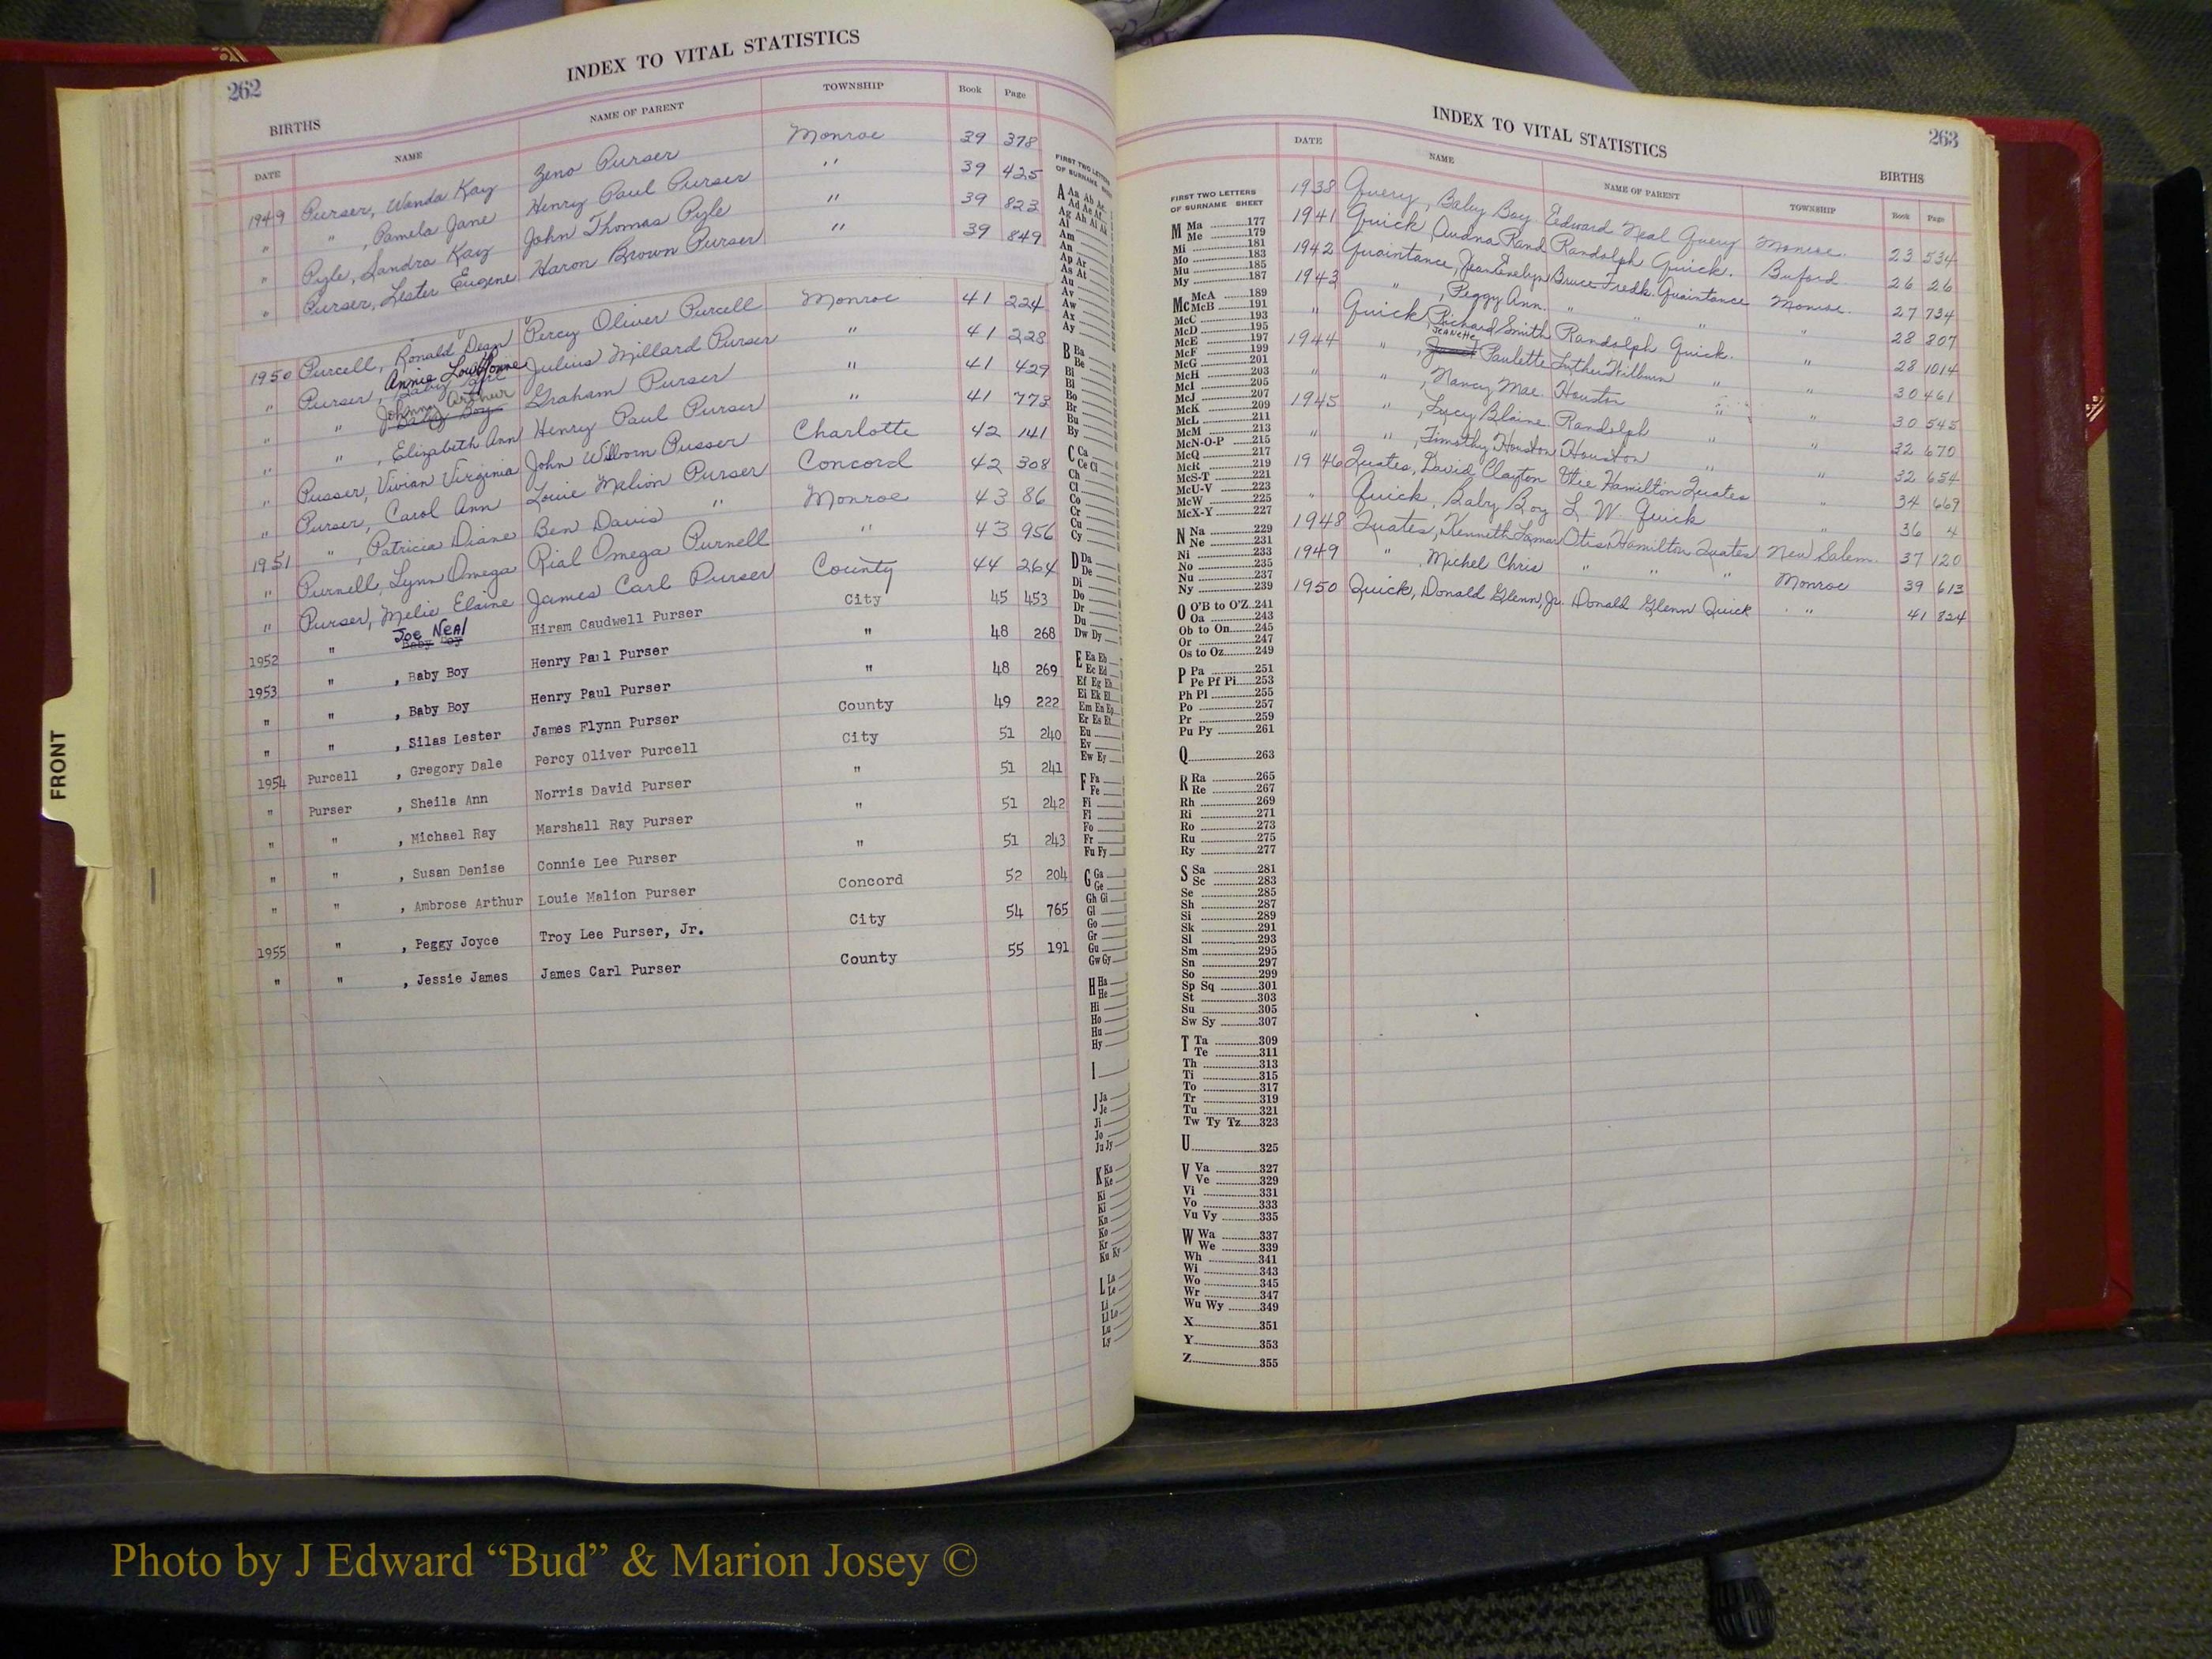 262
INDEX TO VITAL STATISTICS
BIRTHS
DATE NAME NAME OF PARENT TOWNSHIP Book Page
1949 Purser, Wanda Kay Zeno Purser Monroe 39 378
" " , Pamela Jane Henry Paul Purser " 39 425
" Pyle, Sandra Kay John Thomas Pyle " 39 823
" Purser, Lester Eugene Haron Brown Purser " 39 849
1950 Purcell, Ronald Dean Percy Oliver Purcell Monroe 41 224
Annie Lou
" Purser, Baby Girl Julius Millard Purser " 41 228
Johnny Arthur
" " Baby Boy Graham Purser " 41 429
" " , Elizabeth Ann Henry Paul Purser " 41 773
" Pusser, Vivian Virginia John Wilborn Pusser Charlotte 42 141
" Purser, Carol Ann Louie Malion Purser Concord 42 308
1951 " , Patricia Diane Ben Davis " Monroe 43 86
" Purnell, Lynn Omega Rial Omega Purnell " 43 956
" Purser, Melie Elaine James Carl Purser County 44 264
Joe Neal
1952 " Baby Boy Hiram Caudwell Purser City 45 453
1953 " , Baby Boy Henry Paul Purser " 48 268
" " , Baby Boy Henry Paul Purser " 48 269
" " , Silas Lester James Flynn Purser County 49 222
1954 Purcell , Gregory Dale Percy Oliver Purcell City 51 240
" Purser , Sheila Ann Norris David Purser " 51 241
" " , Michael Ray Marshall Ray Purser " 51 242
" " , Susan Denise Connie Lee Purser " 51 243
" " , Ambrose Arthur Louie Malion Purser Concord 52 204
1955 " , Peggy Joyce Troy Lee Purser, Jr. City 54 765
" " , Jessie James James Carl Purser County 55 191
FRONT
FIRST TWO LETTERS
OF SURNAME
A Aa Ab Ac
Ad Ae Af
Ag Ah Ai Ak
Al
Am
An
Ap Ar
As At
Au
Av
Aw
Ax
Ay
B Ba
Be
Bi
Bl
Bo
Br
Bu
By
C Ca
Ce Ci
Ch
Cl
Co
Cr
Cu
Cy
D Da
De
Di
Do
Dr
Du
Dw Dy
E Ea Eb
Ec Ed
Ef Eg Eh
Ei Ek El
Em En Ep
Er Es Et
Eu
Ev
Ew Ey
F Fa
Fe
Fi
Fl
Fo
Fr
Fu Fy
G Ga
Ge
Gh Gi
Gl
Go
Gr
Gu
Gw Gy
H Ha
He
Hi
Ho
Hu
Hy
I
J Ja
Je
Ji
Jo
Ju Jy
K Ka
Ke
Ki
Kl
Kn
Ko
Kr
Ku Ky
L La
Le
Li
Ll Lo
Lu
Ly
INDEX TO VITAL STATISTICS
263
BIRTHS
DATE NAME NAME OF PARENT TOWNSHIP Book Page
1938 Query, Baby Boy Edward Neal Query Monroe. 23 534
1941 Quick, Rand Randolph Quick. Buford 26 26
1942 Quaintance, Jean Evelyn Bruce Fredk. Quaintance Monroe. 27 734
1943 " , Peggy Ann. " " " " 28 807
" Quick, Richard Smith Randolph Quick. " 28 1014
Jeanette
1944 " , Paulette Luther Wilburn " " 30 461
" " , Nancy Mae. Houston " " 30 545
1945 " , Lucy Blaine Randolph " " 32 670
" " , Timothy Houston Houston " " 32 654
1946 Quates, David Clayton Hamilton Quates " 34 669
" Quick, Baby Boy L. W. Quick " 36 4
1948 Quates, Kenneth Lamar Otis Hamilton Quates New Salem. 37 120
1949 " , Michel Chris " " " Monroe 39 613
1950 Quick, Donald Glenn, Jr. Donald Glenn Quick " 41 824
FIRST TWO LETTERS
OF SURNAME SHEET
M Ma 177
Me 179
Mi 181
Mo 183
Mu 185
My 187
Mc McA 189
McB 191
McC 193
McD 195
McE 197
McF 199
McG 201
McH 203
McI 205
McJ 207
McK 209
McL 211
McM 213
McN-O-P 215
McQ 217
McR 219
McS-T 221
McU-V 223
McW 225
McX-Y 227
N Na 229
Ne 231
Ni 233
No 235
Nu 237
Ny 239
O O'B to O'Z 241
Oa 243
Ob to On 245
Or 247
Os to Oz 249
P Pa 251
Pe Pf Pi 253
Ph Pl 255
Po 257
Pr 259
Pu Py 261
Q 263
R Ra 265
Re 267
Rh 269
Ri 271
Ro 273
Ru 275
Ry 277
S Sa 281
Sc 283
Se 285
Sh 287
Si 289
Sk 291
Sl 293
Sm 295
Sn 297
So 299
Sp Sq 301
St 303
Su 305
Sw Sy 307
T Ta 309
Te 311
Th 313
Ti 315
To 317
Tr 319
Tu 321
Tw Ty Tz 323
U 325
V Va 327
Ve 329
Vi 331
Vo 333
Vu Vy 335
W Wa 337
We 339
Wh 341
Wi 343
Wo 345
Wr 347
Wu Wy 349
X 351
Y 353
Z 355
Photo by J Edward “Bud” & Marion Josey ©